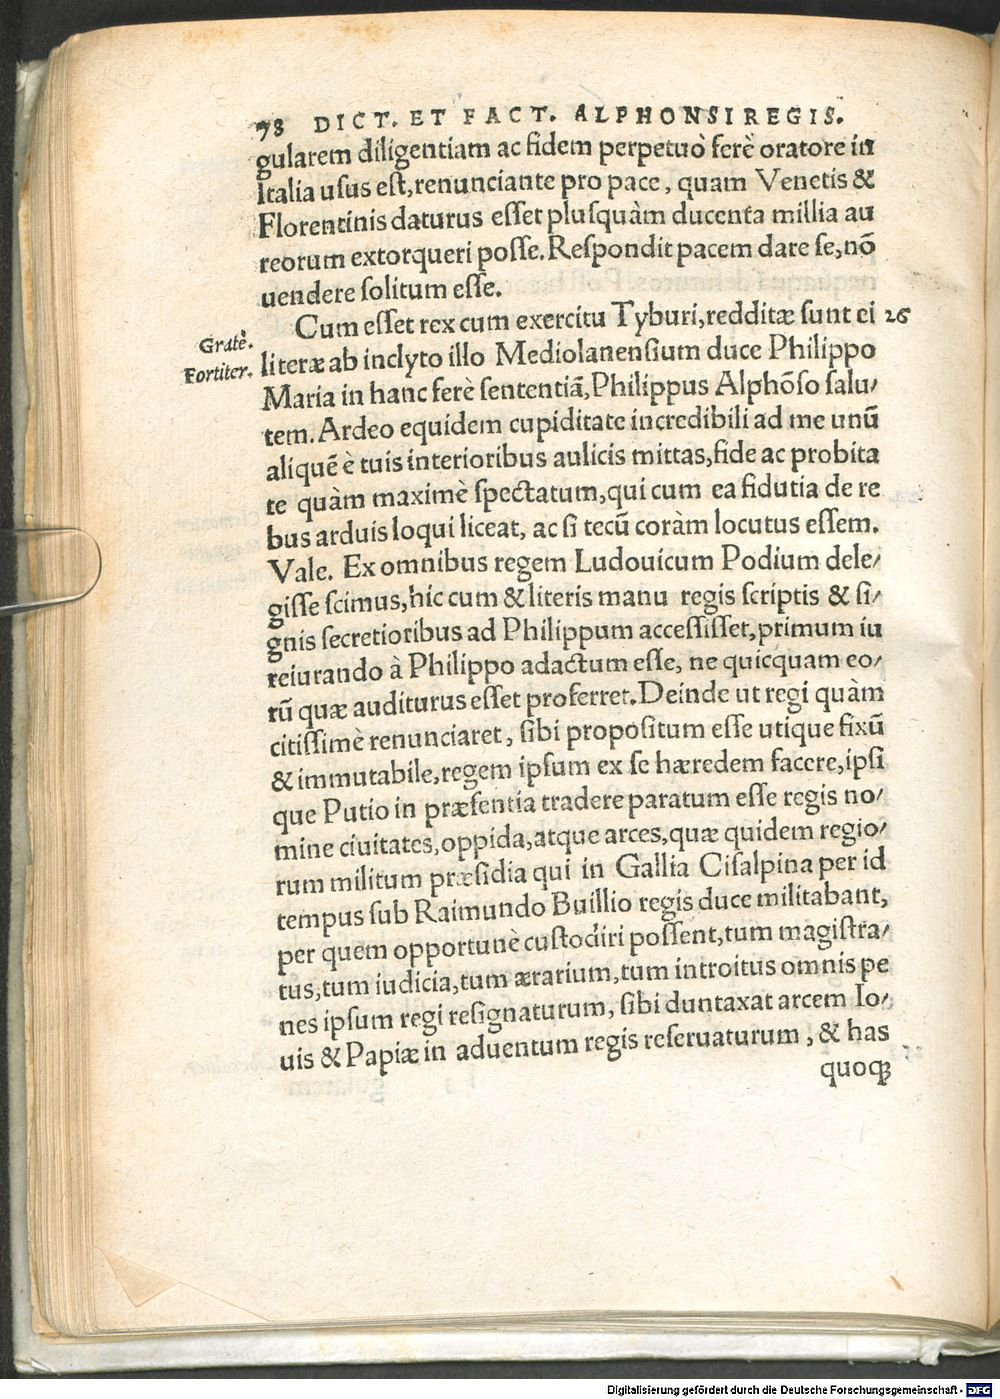 78 DICT. ET FACT. ALPHONSI REGIS.
gularem diligentiam ac fidem perpetuò ferè oratore in
Italia usus est, renunciante pro pace, quam Venetis &
Florentinis daturus esset plusquàm ducenta millia au
reorum extorqueri posse. Respondit pacem dare se, nō
uendere solitum esse.
Cum esset rex cum exercitu Tyburi, redditæ sunt ei 26
Gratè.
Fortiter.
literæ ab inclyto illo Mediolanensium duce Philippo
Maria in hanc ferè sententiā, Philippus Alphōso salu/
tem. Ardeo equidem cupiditate incredibili ad me unū
aliquē è tuis interioribus aulicis mittas, fide ac probita
te quàm maximè spectatum, qui cum ea fidutia de re
bus arduis loqui liceat, ac si tecū coràm locutus essem.
Vale. Ex omnibus regem Ludouicum Podium dele/
gisse scimus, hic cum & literis manu regis scriptis & si/
gnis secretioribus ad Philippum accessisset, primum iu
reiurando à Philippo adactum esse, ne quicquam eo/
rū quæ auditurus esset proferret. Deinde ut regi quàm
citissimè renunciaret, sibi propositum esse utique fixū
& immutabile, regem ipsum ex se hæredem facere, ipsi
que Putio in præsentia tradere paratum esse regis no/
mine ciuitates, oppida, atque arces, quæ quidem regio/
rum militum præsidia qui in Gallia Cisalpina per id
tempus sub Raimundo Buillio regis duce militabant,
per quem opportunè custodiri possent, tum magistra/
tus, tum iudicia, tum ærarium, tum introitus omnis pe
nes ipsum regi resignaturum, sibi duntaxat arcem Io/
uis & Papiæ in aduentum regis reseruaturum, & has
quoq;
Digitalisierung gefördert durch die Deutsche Forschungsgemeinschaft - DFG